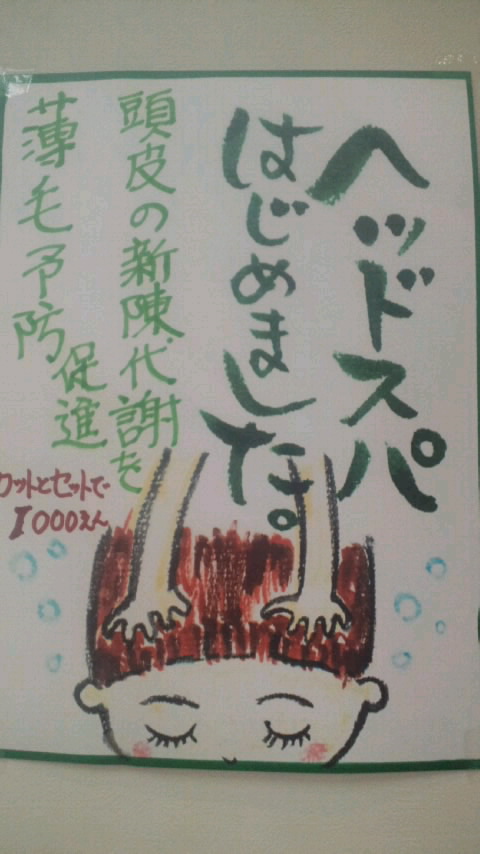 ヘッドスパ
はじめました。
頭皮の新陳代謝を
促進
薄毛予防
カットとセットで
1000えん